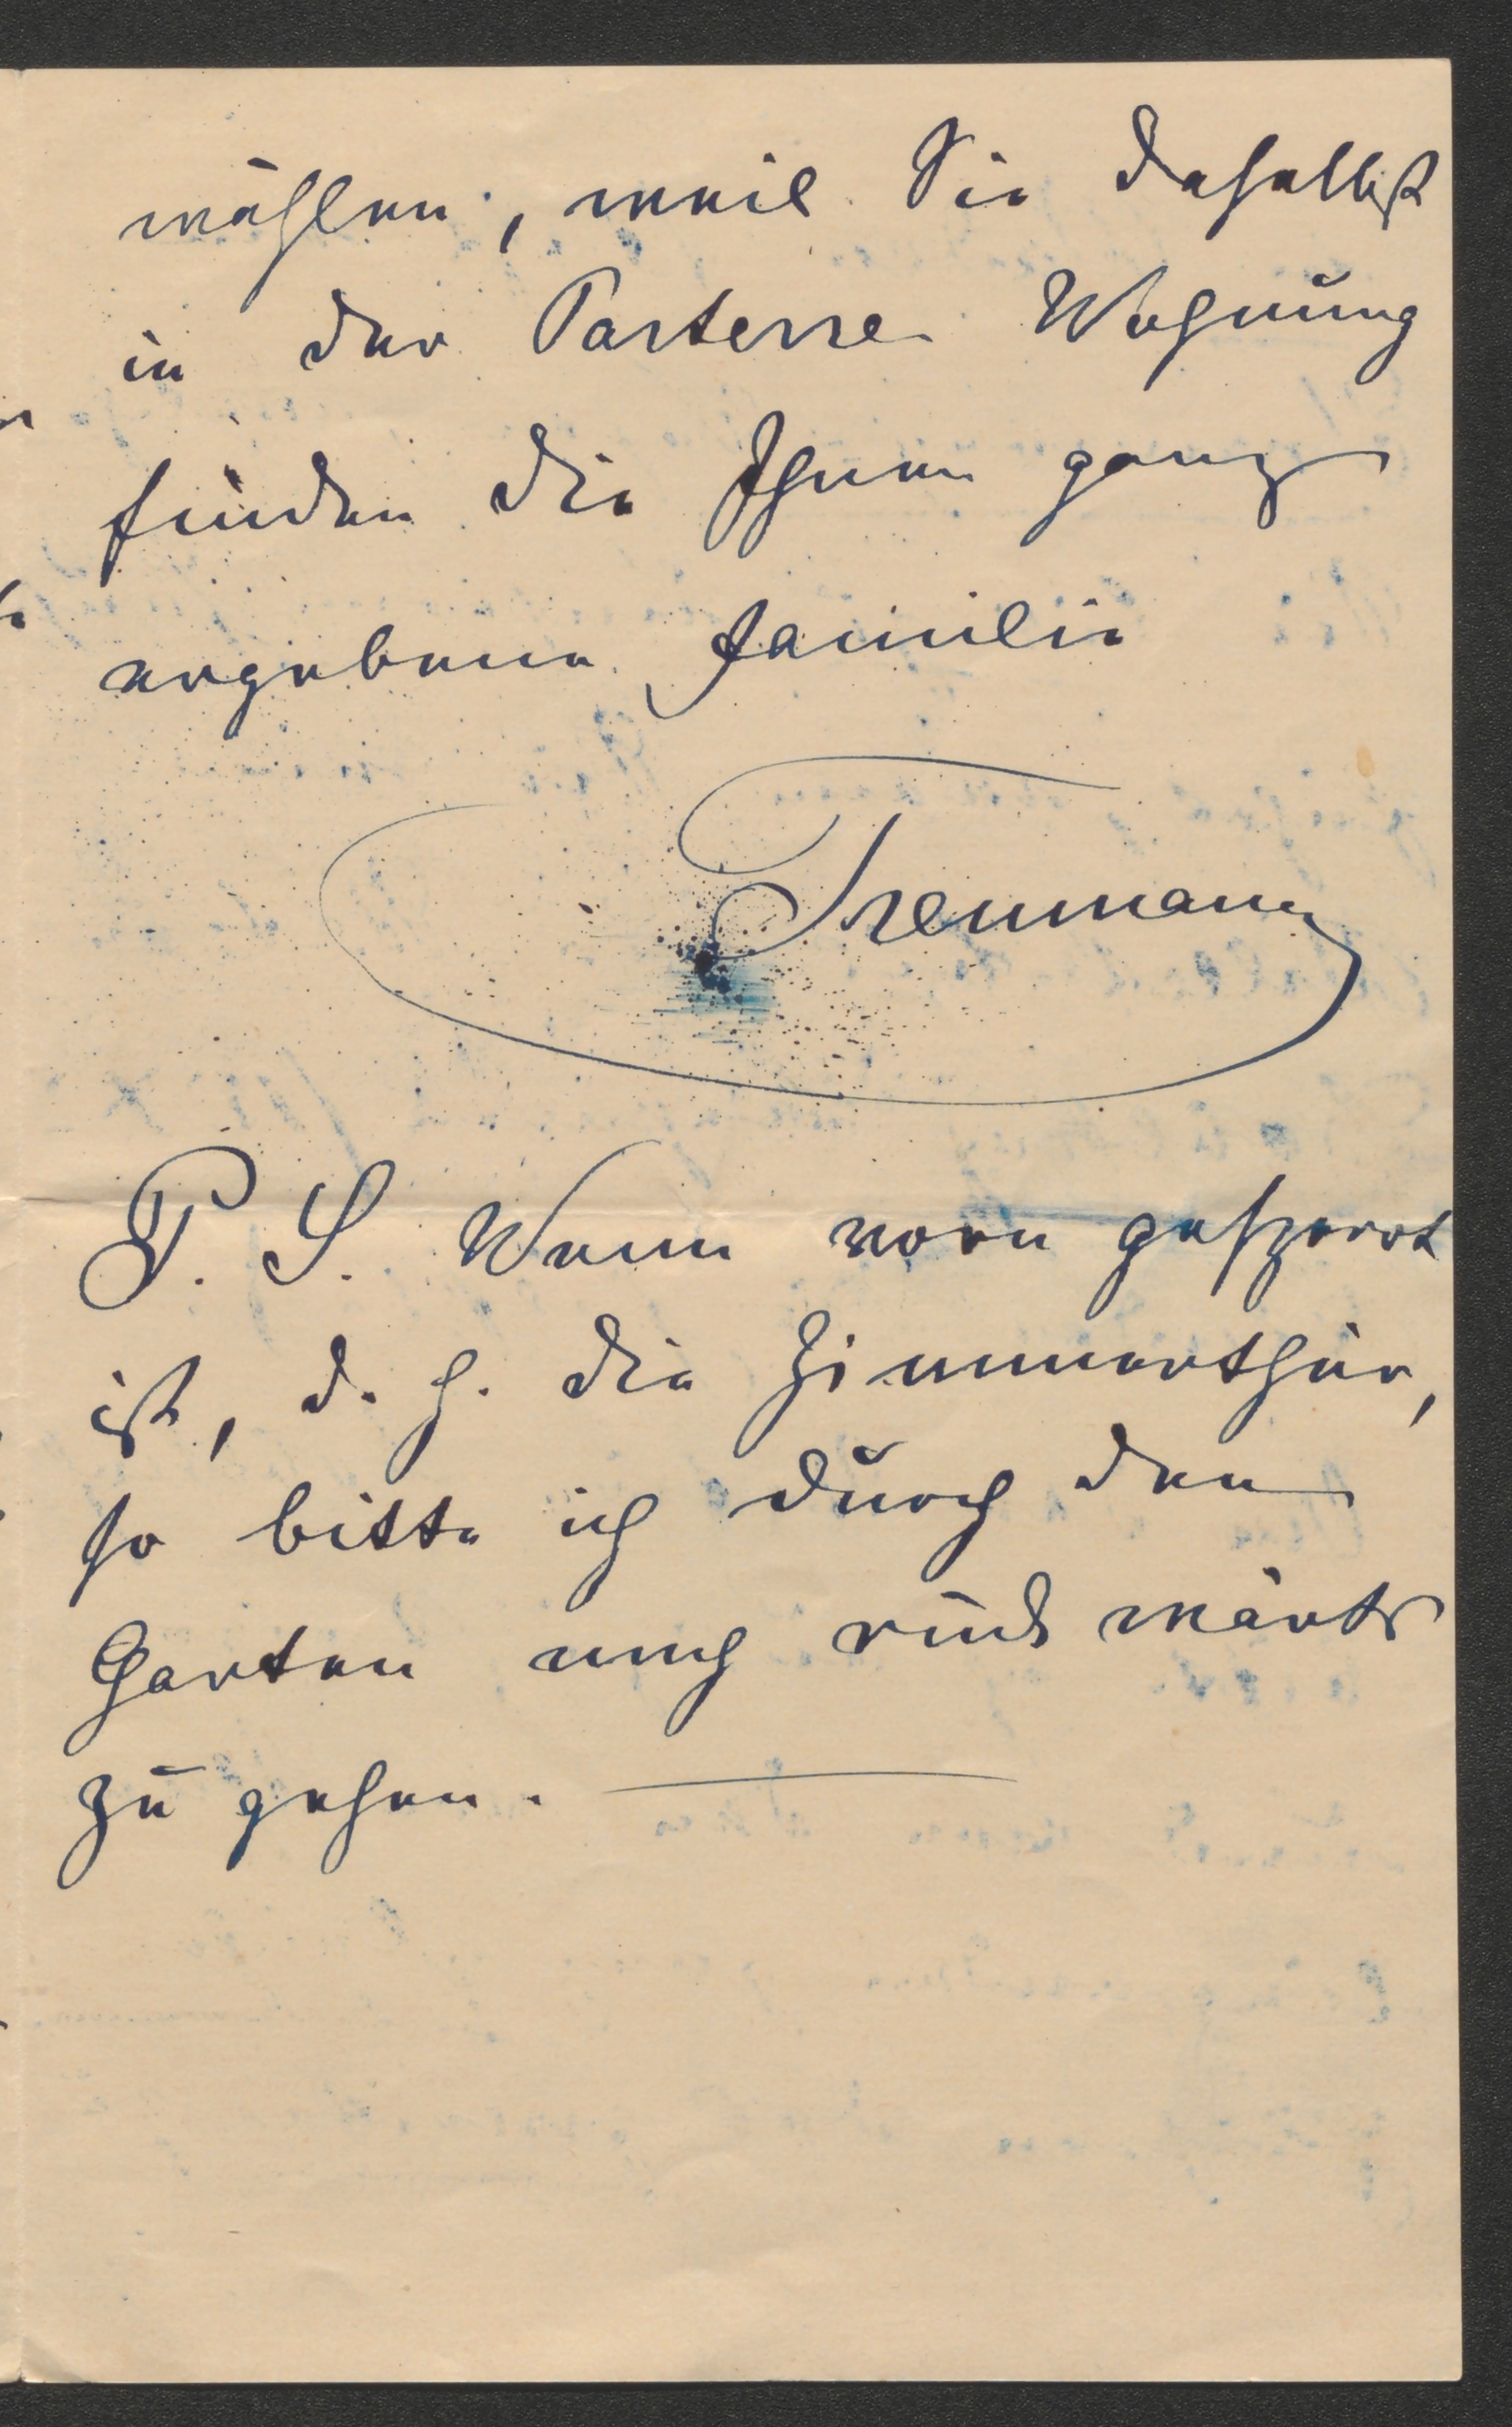 wählen, weil Sie daselbst
in der Parterre Wohnung
finden die Ihnen ganz
ergebene Familie
Trenmann
P. S. Wenn vorn gesperrt
ist, d. h. die Zimmerthür,
so bitte ich durch den
Garten nach rück wärts
zu gehen.